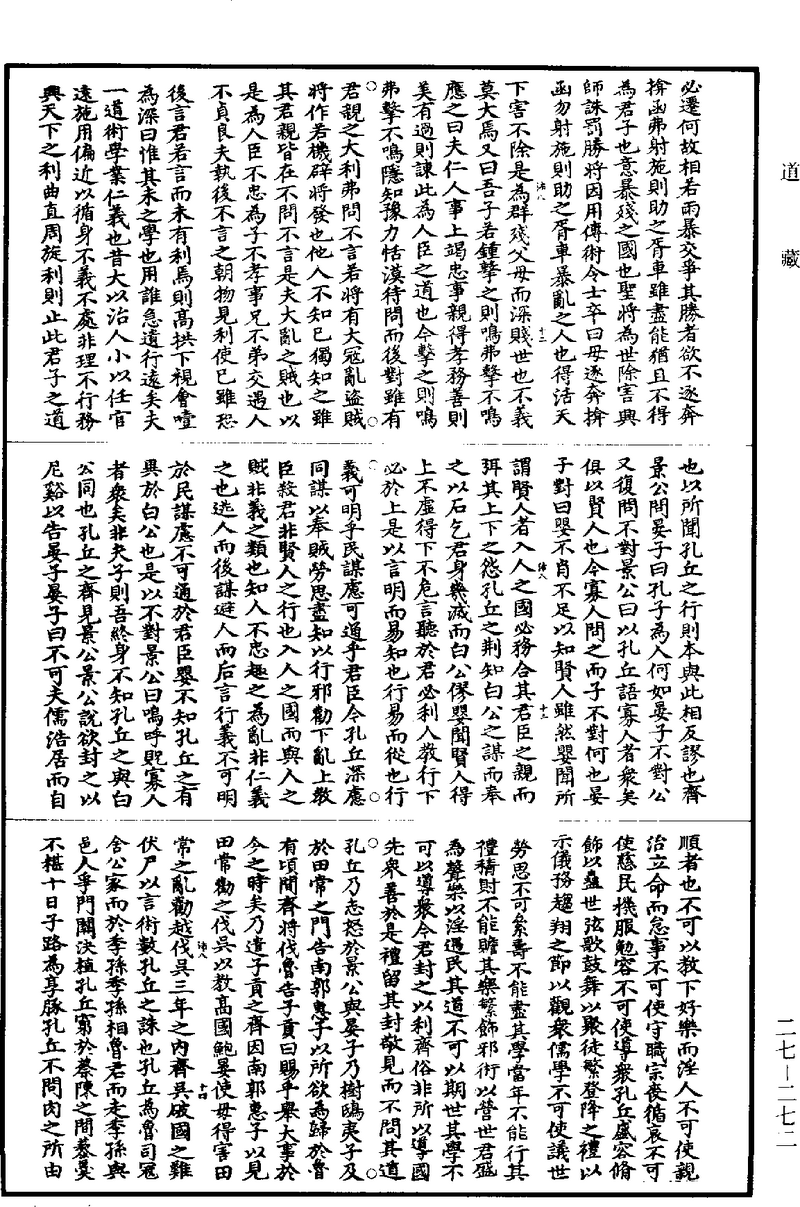 道藏
必遷何故相若兩暴交爭其勝者欲不逐奔
揜函弗射施則助之胥車雖盡能猶且不得
為君子也意暴殘之國也聖將為世除害興
師誅罰勝將因用傳術令士卒曰毋逐奔揜
函勿射施則助之胥車暴亂之人也得活天
下害不除是為群殘父母而深賤世也不義
莫大焉又曰吾子若鍾擊之則鳴弗擊不鳴
應之曰夫仁人事上竭忠事親得孝務善則
美有過則諫此為人臣之道也今擊之則鳴
弗擊不鳴隱知豫力恬漠待問而後對雖有
君親之大利弗問不言若將有大寇亂盜賊
將作若機辟將發也他人不知己獨知之雖
其君親皆在不問不言是夫大亂之賊也以
是為人臣不忠為子不孝事兄不弟交遇人
不貞良夫執後不言之朝物見利使己雖恐
後言君若言而未有利焉則高拱下視會噎
為深曰惟其未之學也用誰急遺行遠矣夫
一道術學業仁義也昔大以治人小以任官
遠施用偏近以循身不義不處非理不行務
興天下之利曲直周旋利則止此君子之道
也以所聞孔丘之行則本與此相反謬也齊
景公問晏子曰孔子為人何如晏子不對公
又復問不對景公曰以孔丘語寡人者衆矣
俱以賢人也今寡人問之而子不對何也晏
子對曰嬰不肖不足以知賢人雖然嬰聞所
謂賢人者入人之國必務合其君臣之親而
弭其上下之怨孔丘之荆知白公之謀而奉
之以石乞君身幾滅而白公僇嬰聞賢人得
上不虛得下不危言聽於君必利人教行下
必於上是以言明而易知也行易而從也行
義可明乎民謀慮可通乎君臣今孔丘深慮
同謀以奉賊勞思盡知以行邪勸下亂上教
臣殺君非賢人之行也入人之國而與人之
賊非義之類也知人不忠趣之為亂非仁義
之也逃人而後謀避人而后言行義不可明
於民謀慮不可通於君臣嬰不知孔丘之有
異於白公也是以不對景公曰嗚呼貺寡人
者衆矣非夫子則吾終身不知孔丘之與白
公同也孔丘之齊見景公景公說欲封之以
尼谿以告晏子晏子曰不可夫儒浩居而自
順者也不可以教下好樂而淫人不可使親
治立命而怠事不可使守職宗喪循哀不可
使慈民機服勉容不可使導衆孔丘盛容脩
飾以蠱世弦歌鼓舞以聚徒繁登降之禮以
示儀務趨翔之節以觀衆儒學不可使議世
勞思不可絫壽不能盡其學當年不能行其
禮積財不能贍其樂繁飾邪術以營世君盛
為聲樂以淫遇民其道不可以期世其學不
可以導衆今君封之以利齊俗非所以導國
先衆善於是禮留其封敬見而不問其道
孔丘乃志怒於景公與晏子乃樹鴟夷子及
於田常之門告南郭惠子以所欲為歸於魯
有頃間齊將伐魯告子貢曰賜乎舉大事於
今之時矣乃遣子貢之齊因南郭惠子以見
田常勸之伐吳以教高國鮑晏使毋得害田
常之亂勸越伐吳三年之內齊吳破國之難
伏尸以言術數孔丘之誅也孔丘為魯司寇
舍公家而於季孫季孫相魯君而走季孫與
邑人爭門關決植孔丘窮於蔡陳之間藜羹
不糂十日子路為享豚孔丘不問肉之所由
二七—二七二